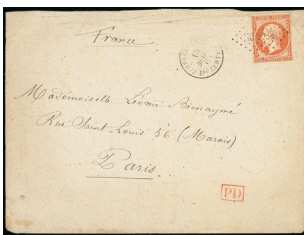 France
Mademoiselle Léonie Bienaymé
Rue Saint-Louis 56 (Marais)
Paris
PD